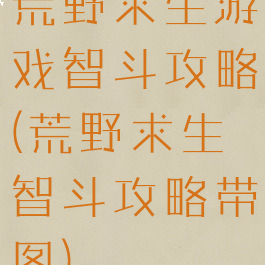 荒野求生游
戏智斗攻略
(荒野求生
智斗攻略带
图)